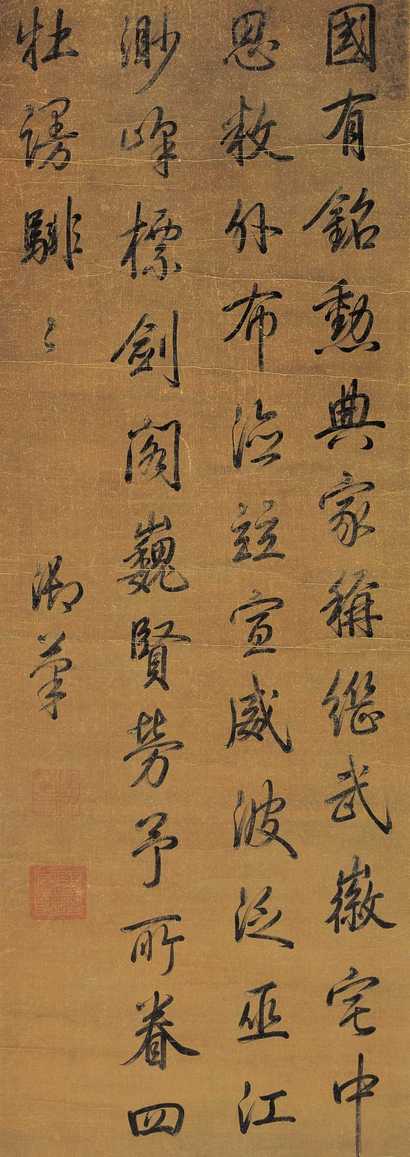 國有銘勳典家稱繼武徽宅中
思敉外布竝宣威波泛巫江
渺峰標劍閣巍賢勞予所眷四
牡謾騑〻
御筆